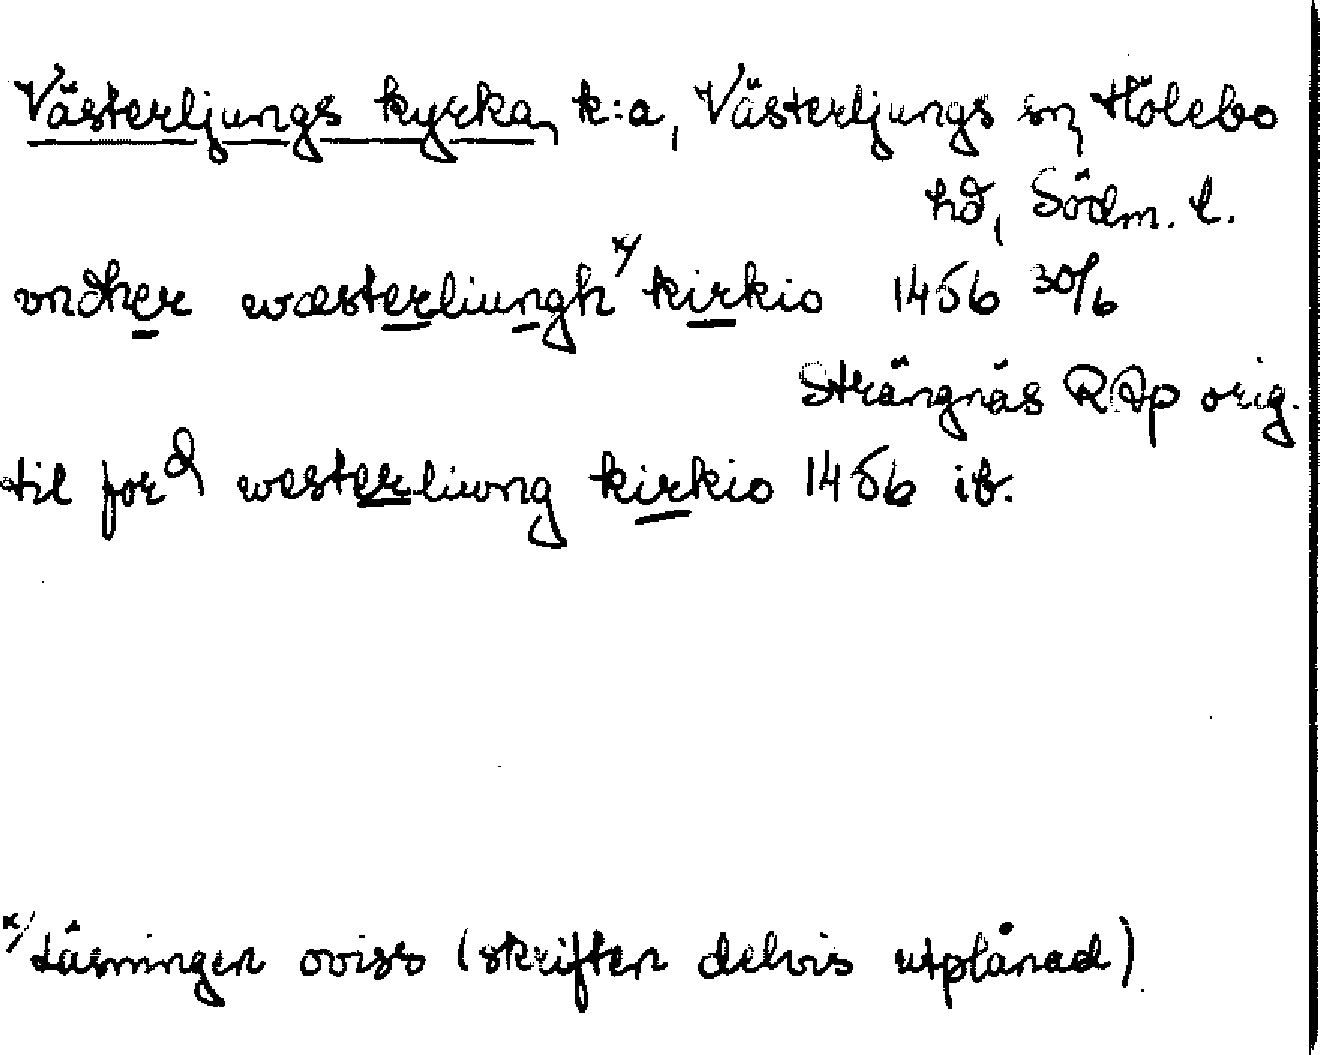 Västerljungs kyrka, k:a, Västerljungs sn, Hölebo
hd, Södm. l.
vndher wæsterliungh x/ kirkio 1456 30/6
Strängnäs RAp orig.
til for d westerliwng kirkio 1456 ib.
x/ Läsningen oviss (skriften delvis utplånad)